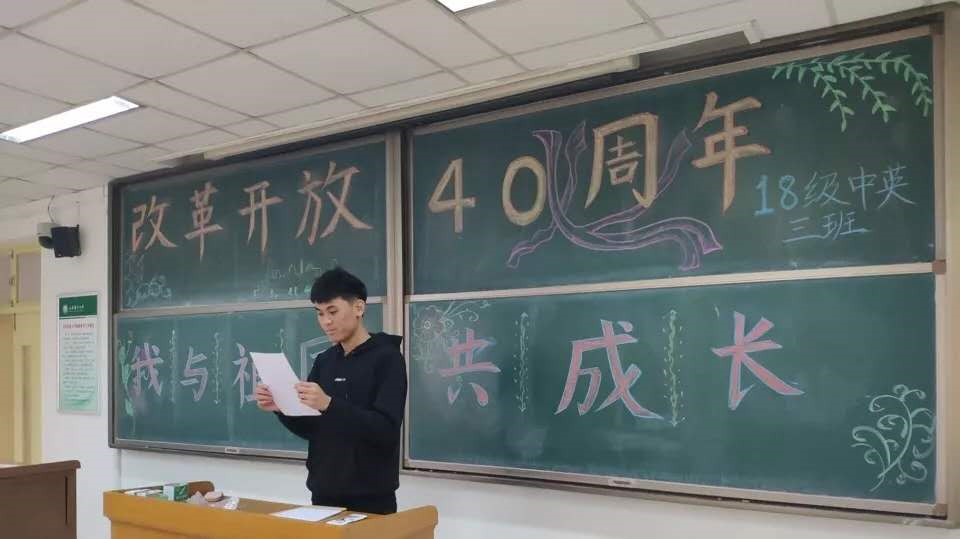 改革开放 40周年
18级中英
三班
我与祖国共成长